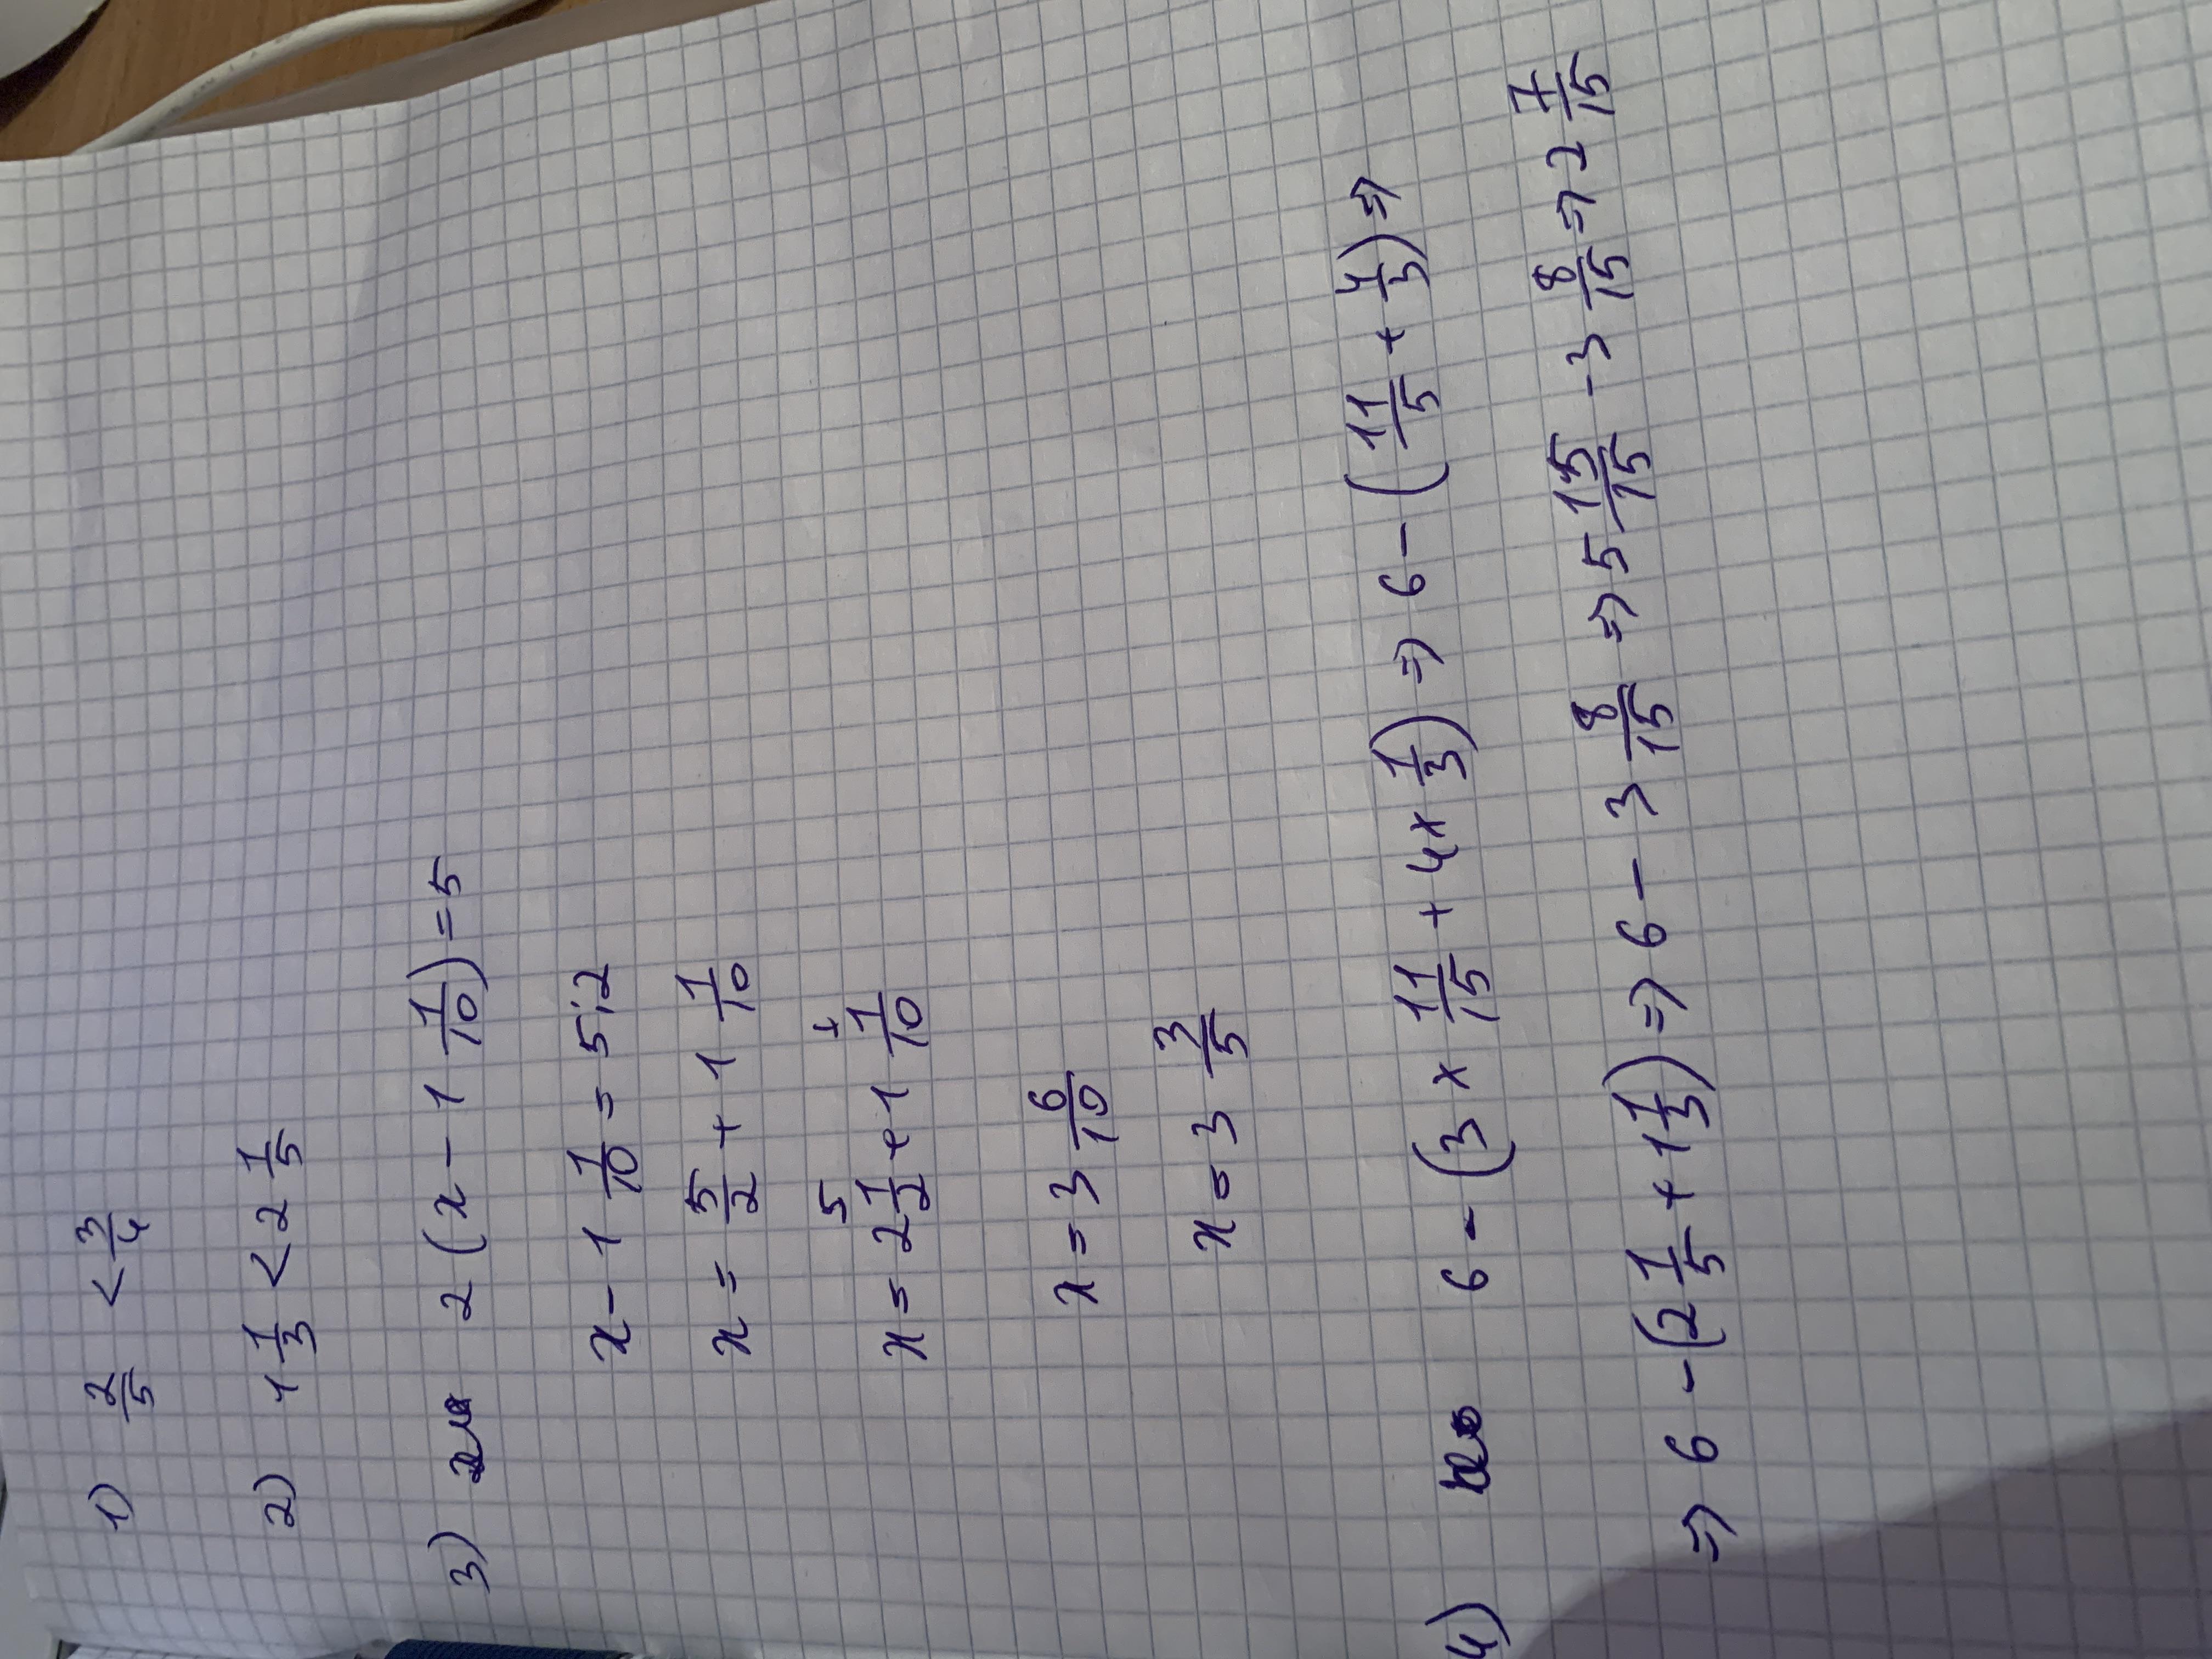 1) 2/5 < 3/4
2) 1 1/3 < 2 1/5
3) 2 (x - 1 1/10) = 5
x - 1 1/10 = 5:2
x = 5/2 + 1 1/10
5 1
x = 2 1/2 + 1 1/10
x = 3 6/10
x = 3 3/5
4) 6 - (3 x 11/15 + 4 x 1/3) => 6 - (11/5 + 4/3) =>
=> 6 - (2 1/5 + 1 1/3) => 6 - 3 8/15 => 5 15/15 - 3 8/15 => 2 7/15